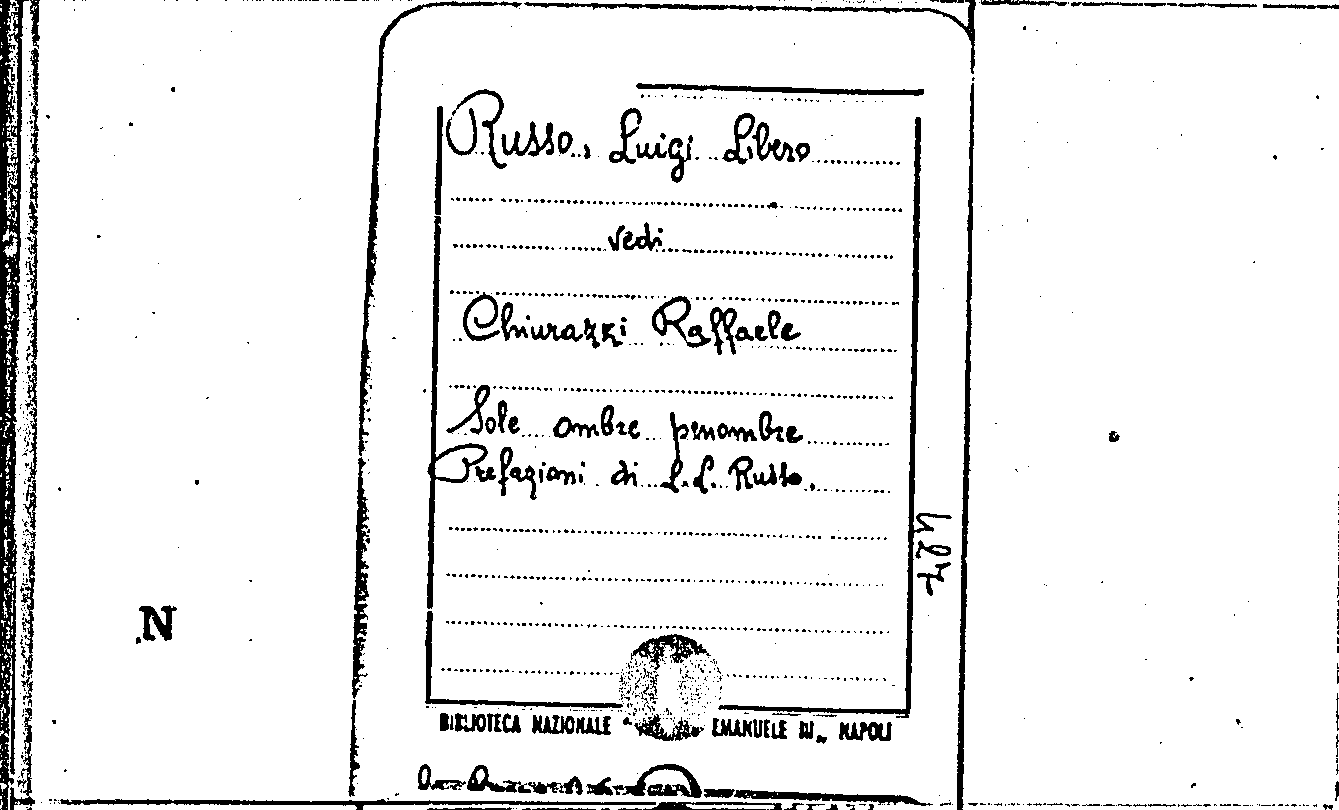 Russo, Luigi Libero
vedi
Chiurazzi Raffaele
Sole ombre penombre
Prefazioni di L. L. Russo.
427
N
BIBLIOTECA NAZIONALE EMANUELE III„ NAPOLI